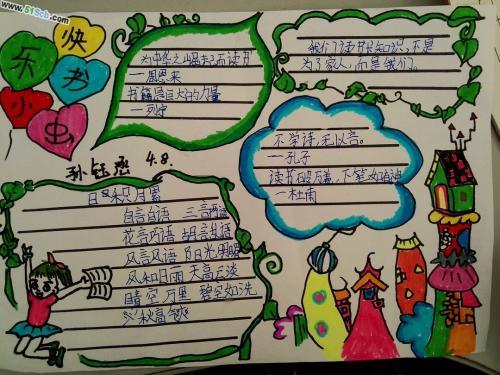 www.51Sch.com
快
乐 书
小 虫
孙钰
4.8.
为中华之崛起而读书
—周恩来
书籍是巨大的力量
—列宁
我们读书长知识,不是
为了家人,而是我们。
不学诗,无以言。
—孔子
读书破万卷,下笔如有神
—杜甫
日积月累
自言自语 三言两语
花言巧语 胡言乱语
风言风语 阳光明媚
风和日丽 天高云淡
晴空万里 碧空如洗
秋高气